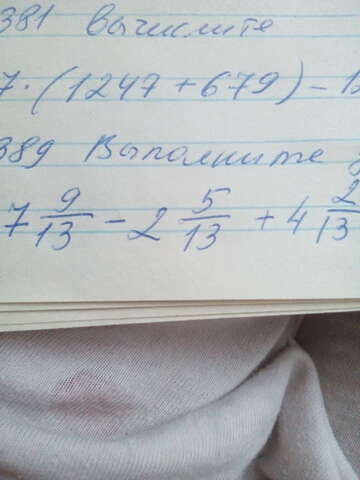 381 Вычислите
7·(1247+679)-12
389 Выполните
7 9/13 - 2 5/13 + 4 2/13